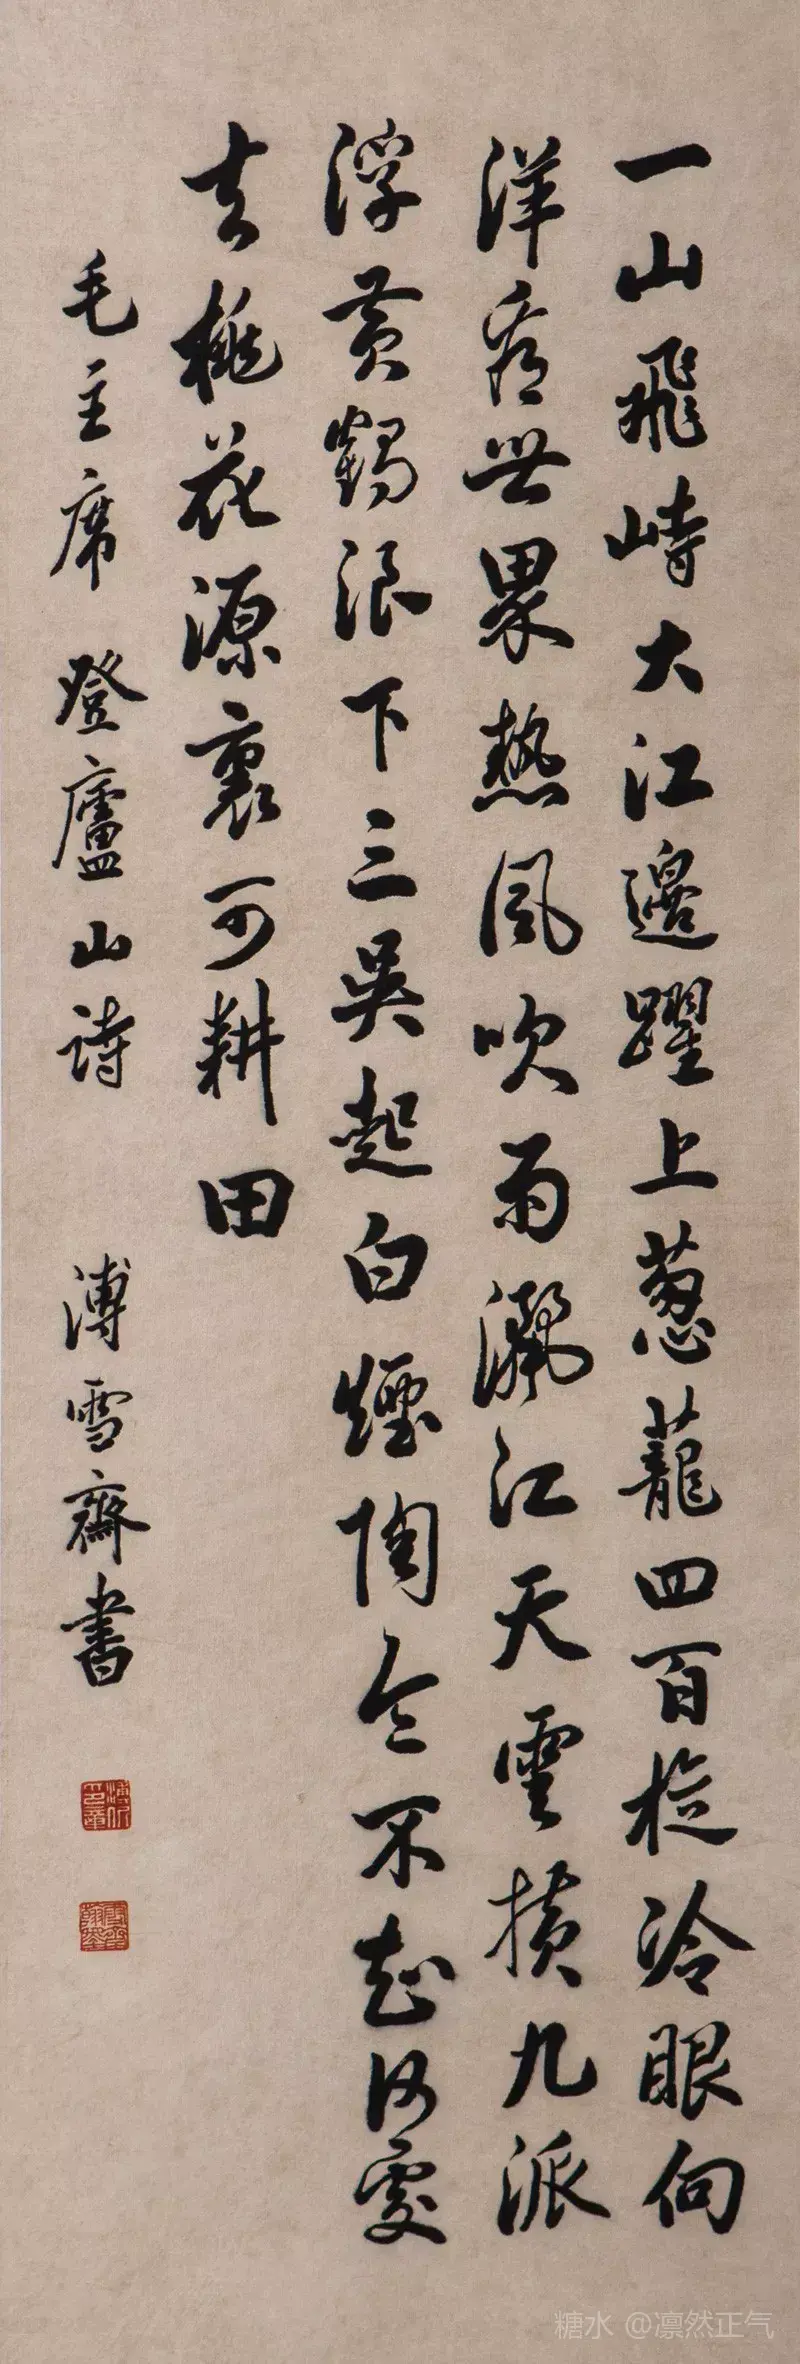 一山飛峙大江邊躍上葱蘢四百旋冷眼向
洋看世界熱風吹雨灑江天雲横九派
浮黄鶴浪下三吳起白煙陶令不知何處
去桃花源裏可耕田
毛主席 登廬山詩 溥雪齋書
糖水 @凛然正气